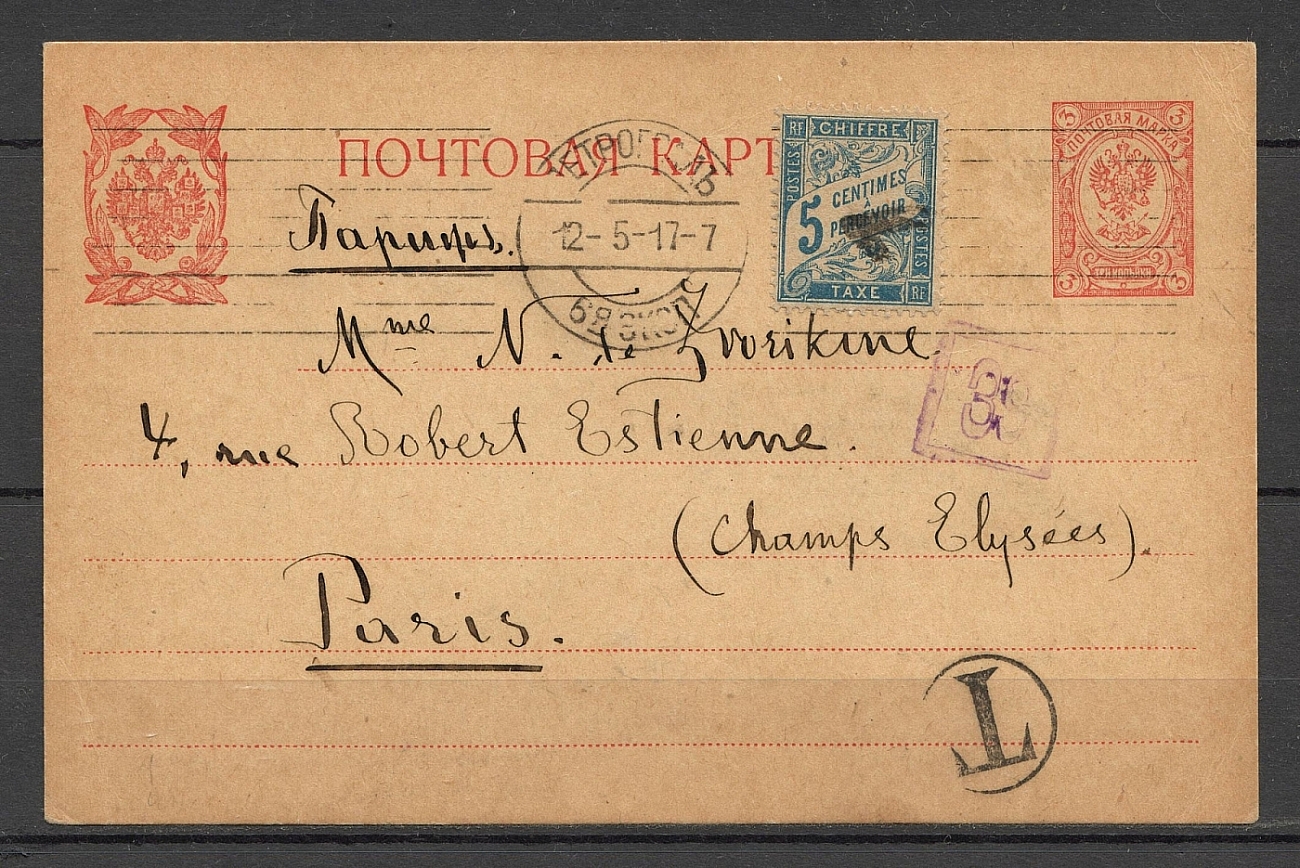 ПОЧТОВАЯ КАРТ
3 3
ПОЧТОВАЯ МАРКА
3 3
RF CHIFFRE
POSTES
5 CENTIMES
À
PERCEVOIR
POSTES
TAXE RF
ПЕТРОГРАДЪ
12-5-17-7
6 ЭКСП.
Парижъ.
Mme N. de Zvorikine.
4, rue Robert Estienne.
(Champs Elysées).
Paris.
T